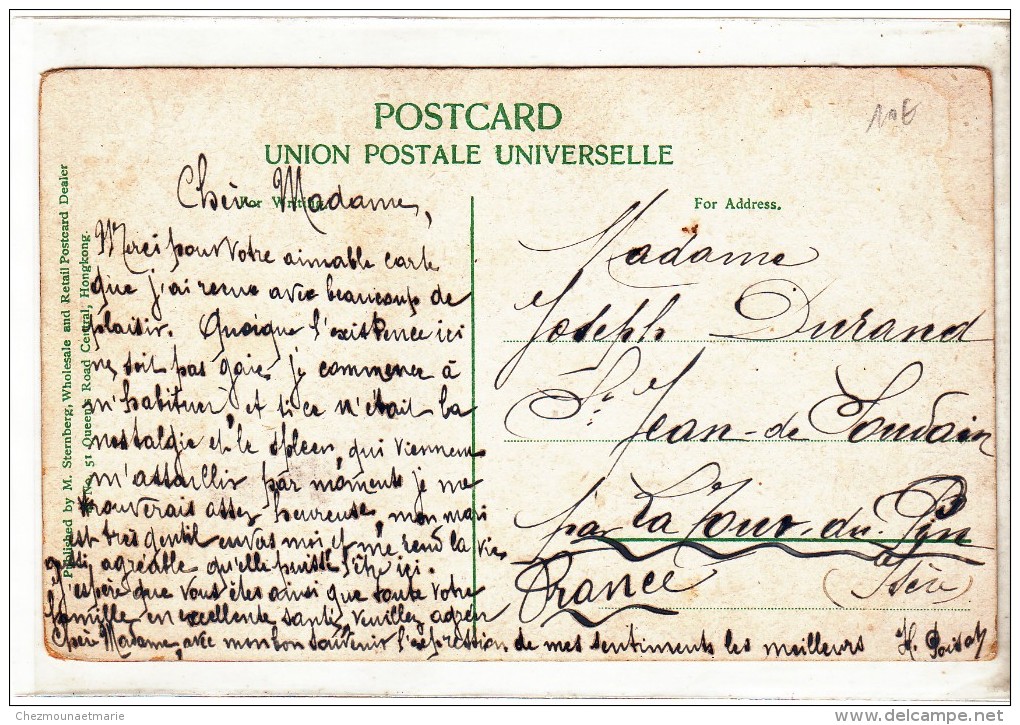 POSTCARD
UNION POSTALE UNIVERSELLE
For Writing.
For Address.
Published by M. Sternberg, Wholesale and Retail Postcard Dealer
No. 51 Queen's Road Central, Hongkong.
Chère Madame,
Merci pour votre aimable carte
que j'ai reçue avec beaucoup de
plaisir. Quoique l'existence ici
ne soit pas gaie je commence à
m'habituer, et si ce n'était la
nostalgie et le spleen, qui viennent
m'assaillir par moments je me
trouverais assez heureuse, mon mari
est très gentil envers moi et me rend la vie
aussi agréable qu'elle puisse l'être ici.
J'espère que vous êtes ainsi que toute votre
famille en excellente santé, veuillez agréer
Chère Madame, avec mon bon souvenir l'expression de mes sentiments les meilleurs H.
Madame
Joseph Durand
St Jean-de Soudain
par La Tour-du-Pin
France (Isère)
Chezmounaetmarie
delcampe.net